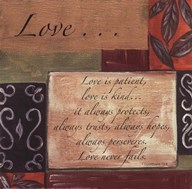 Love . . .
Love is patient,
love is kind...
it always protects,
always trusts, always hopes,
always perseveres.
Love never fails.